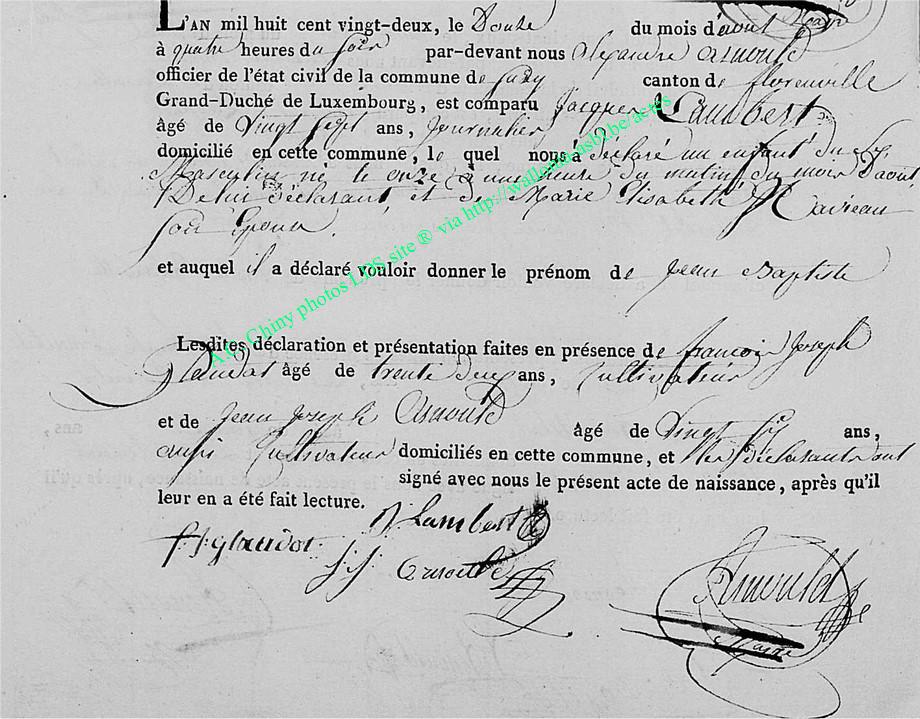 L'AN mil huit cent vingt-deux, le Douze du mois d'aout
à quatre heures du soir par-devant nous alexandre arnould
officier de l'état civil de la commune de canton de florenville
Grand-Duché de Luxembourg, est comparu Jacques Lambert
âgé de Vingt sept ans, Journalier
domicilié en cette commune, le quel nous a déclaré un enfant du
Masculin né le onze à une heure du matin du mois d'aout
De lui déclarant et de Marie Elisabeth
son Epouse.
et auquel il a déclaré vouloir donner le prénom de Jean Baptiste
Lesdites déclaration et présentation faites en présence de francois Joseph
Glaudot âgé de trente deux ans, Cultivateur
et de Jean Joseph Arnould âgé de Vingt six ans,
aussi Cultivateur domiciliés en cette commune, et les déclarants ont
signé avec nous le présent acte de naissance, après qu'il
leur en a été fait lecture.
J Lambert
f. j. glaudot
j. j. arnould
Arnould
Maire
A.C. Chiny photos LDS site ® via http://wallonia.asbl.be/actes